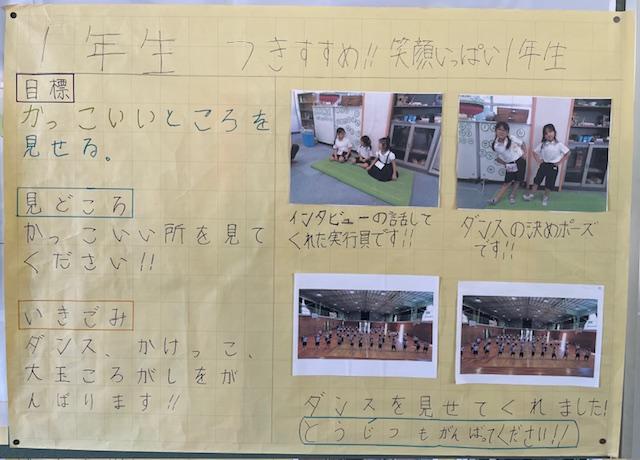 1年生 つきすすめ!! 笑顔いっぱい1年生
目標
かっこいいところを
見せる。
見どころ
かっこいい所を見て
ください!!
いきごみ
ダンス、かけっこ、
大玉ころがしをが
んばります!!
インタビューの話して
くれた実行員です!!
ダンスの決めポーズ
です!!
ダンスを見せてくれました!
とうじつもがんばってください!!